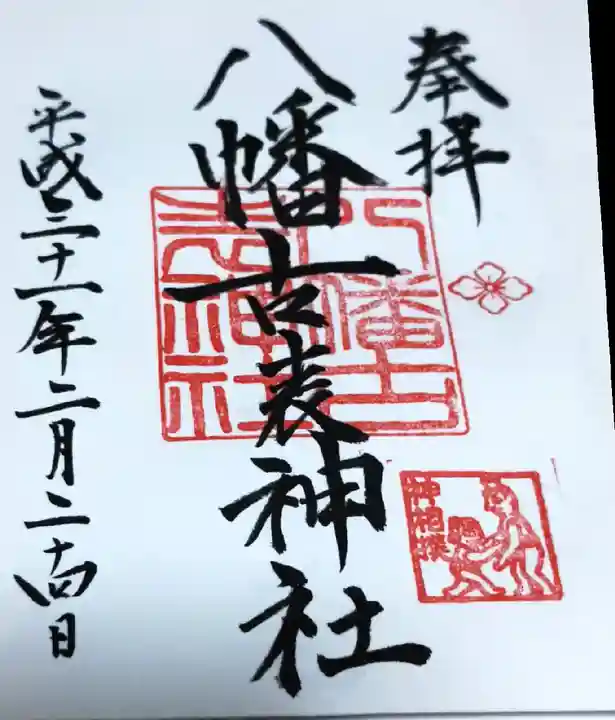 奉拝
八幡古表神社
八幡古表神社
神相撲
平成三十一年二月二十四日